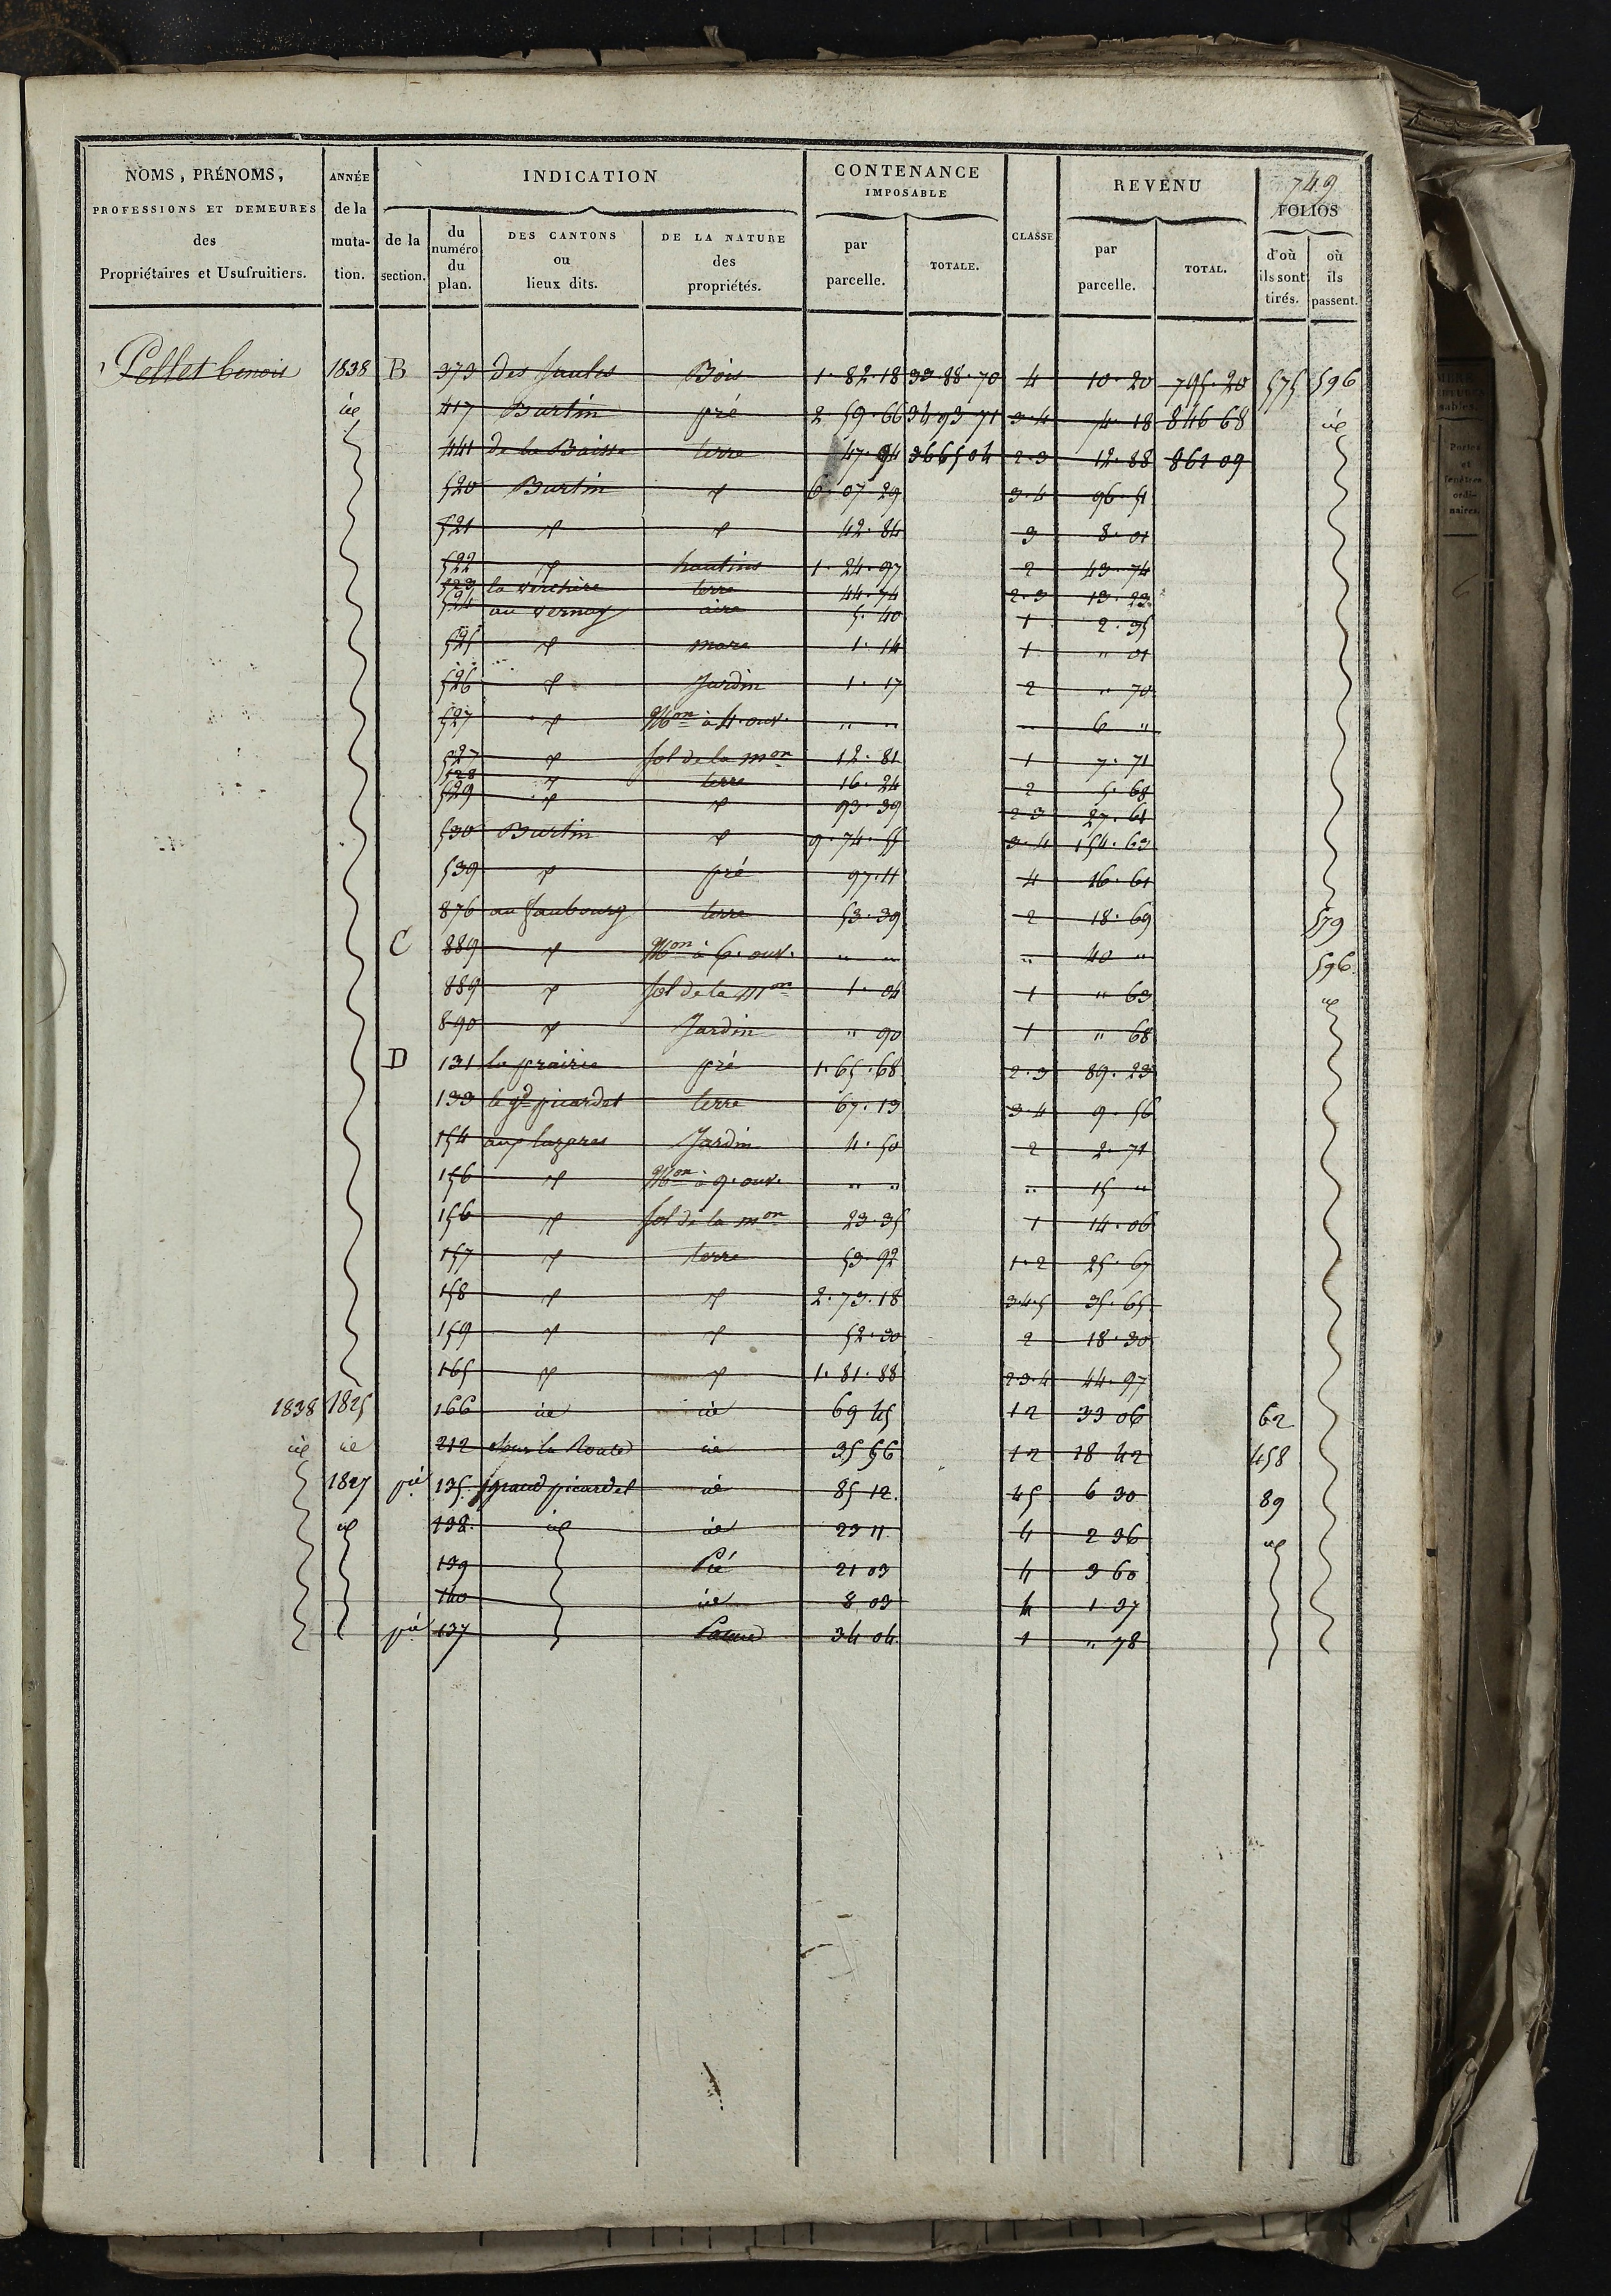 749
NOMS, PRÉNOMS, PROFESSIONS ET DEMEURES des Propriétaires et Usufruitiers. ANNÉE de la muta- tion. INDICATION de la section. du numéro du plan. DES CANTONS ou lieux dits. DE LA NATURE des propriétés. CONTENANCE IMPOSABLE par parcelle. TOTALE. CLASSE REVENU par parcelle. TOTAL. FOLIOS d'où ils sont tirés. où ils passent.
Pellet benoit 1838 B 373 des saules Bois 1. 82. 18 33. 88. 70 4 10. 20 795. 20 575 596
id 417 Burtin pré 2. 59. 66 34 93 71 3. 4 74. 18 846 68 id
441 de la Baisse terre 47. 94 36 65 04 2. 3 12. 88 861 09
520 Burtin d 6. 07 29 3. 4 96. 51
521 d d 42. 84 3 8. 01
522 d hautins 1. 24. 97 2 43. 74
523 la verchère terre 44. 74 2. 3 13. 22
524 au vernay aire 5. 40 1 2. 95
525 d mare 1. 14 1 " 01
526 d Jardin 1. 17 2 " 70
527 d Mon à 4. ouv. " " " 6 "
527 d sol de la mon 12. 81 1 7. 71
528 d terre 16. 24 2 5. 68
529 d d 93. 39 2 3 27. 61
530 Burtin d 9. 74. 55 3. 4 154. 63
539 d pré 97. 11 4 16. 61
876 au faubourg terre 53. 39 2 18. 69 579
C 889 d Mon à 6. ouv. " " " 40 " 596
889 d sol de la Mon 1. 04 1 " 63 id
890 d Jardin " 90 1 " 68
D 131 la prairie pré 1. 65. 68 2. 3 89. 23
133 le gd picardet terre 67. 13 3. 4 9. 56
154 aux lazares Jardin 4. 50 2 2. 71
156 d Mon à 9. ouv. " " " 15 "
156 d sol de la mon 23 35 1 14. 06
157 d terre 53. 92 1. 2 25. 67
158 d d 2. 73. 18 3. 4. 5 35. 65
159 d d 52. 30 2 18. 30
165 d d 1. 81. 88 2 3. 4 44. 97
1838 1825 166 id id 69 45 1 2 33 06 62
id id 212 Sur la Route id 35 56 1 2 18 42 458
1827 pie 135. grand picardet id 85 12. 4 5 6 30 89
id 138. id id 23 11 4 2 36 id
139 Pré 21 03 4 3 60
140 id 8 03 4 1 37
pie 137 Pature 34 04 1 " 78